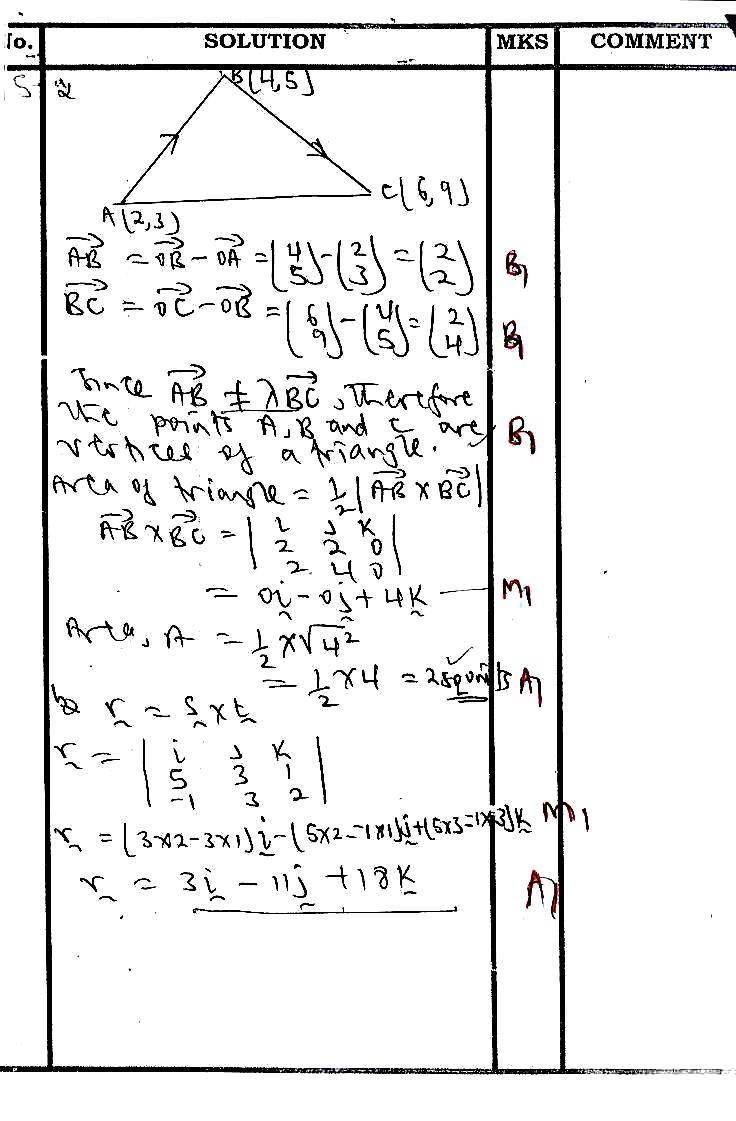 No. SOLUTION MKS COMMENT
5 a
B(4,5)
C(6,9)
A(2,3)
AB = OB - OA = (4 5) - (2 3) = (2 2) B1
BC = OC - OB = (6 9) - (4 5) = (2 4) B1
Since AB ≠ λBC, therefore
the points A, B and C are
vertices of a triangle. B1
Area of triangle = 1/2 |AB × BC|
AB × BC = | i j k
2 2 0
2 4 0 |
= 0i - 0j + 4k M1
Area, A = 1/2 × √4²
= 1/2 × 4 = 2 squnits A1
b r = s × t
r = | i j k
5 3 1
-1 3 2 |
r = (3×2-3×1)i - (5×2--1×1)j + (5×3--1×3)k M1
r = 3i - 11j + 18k A1